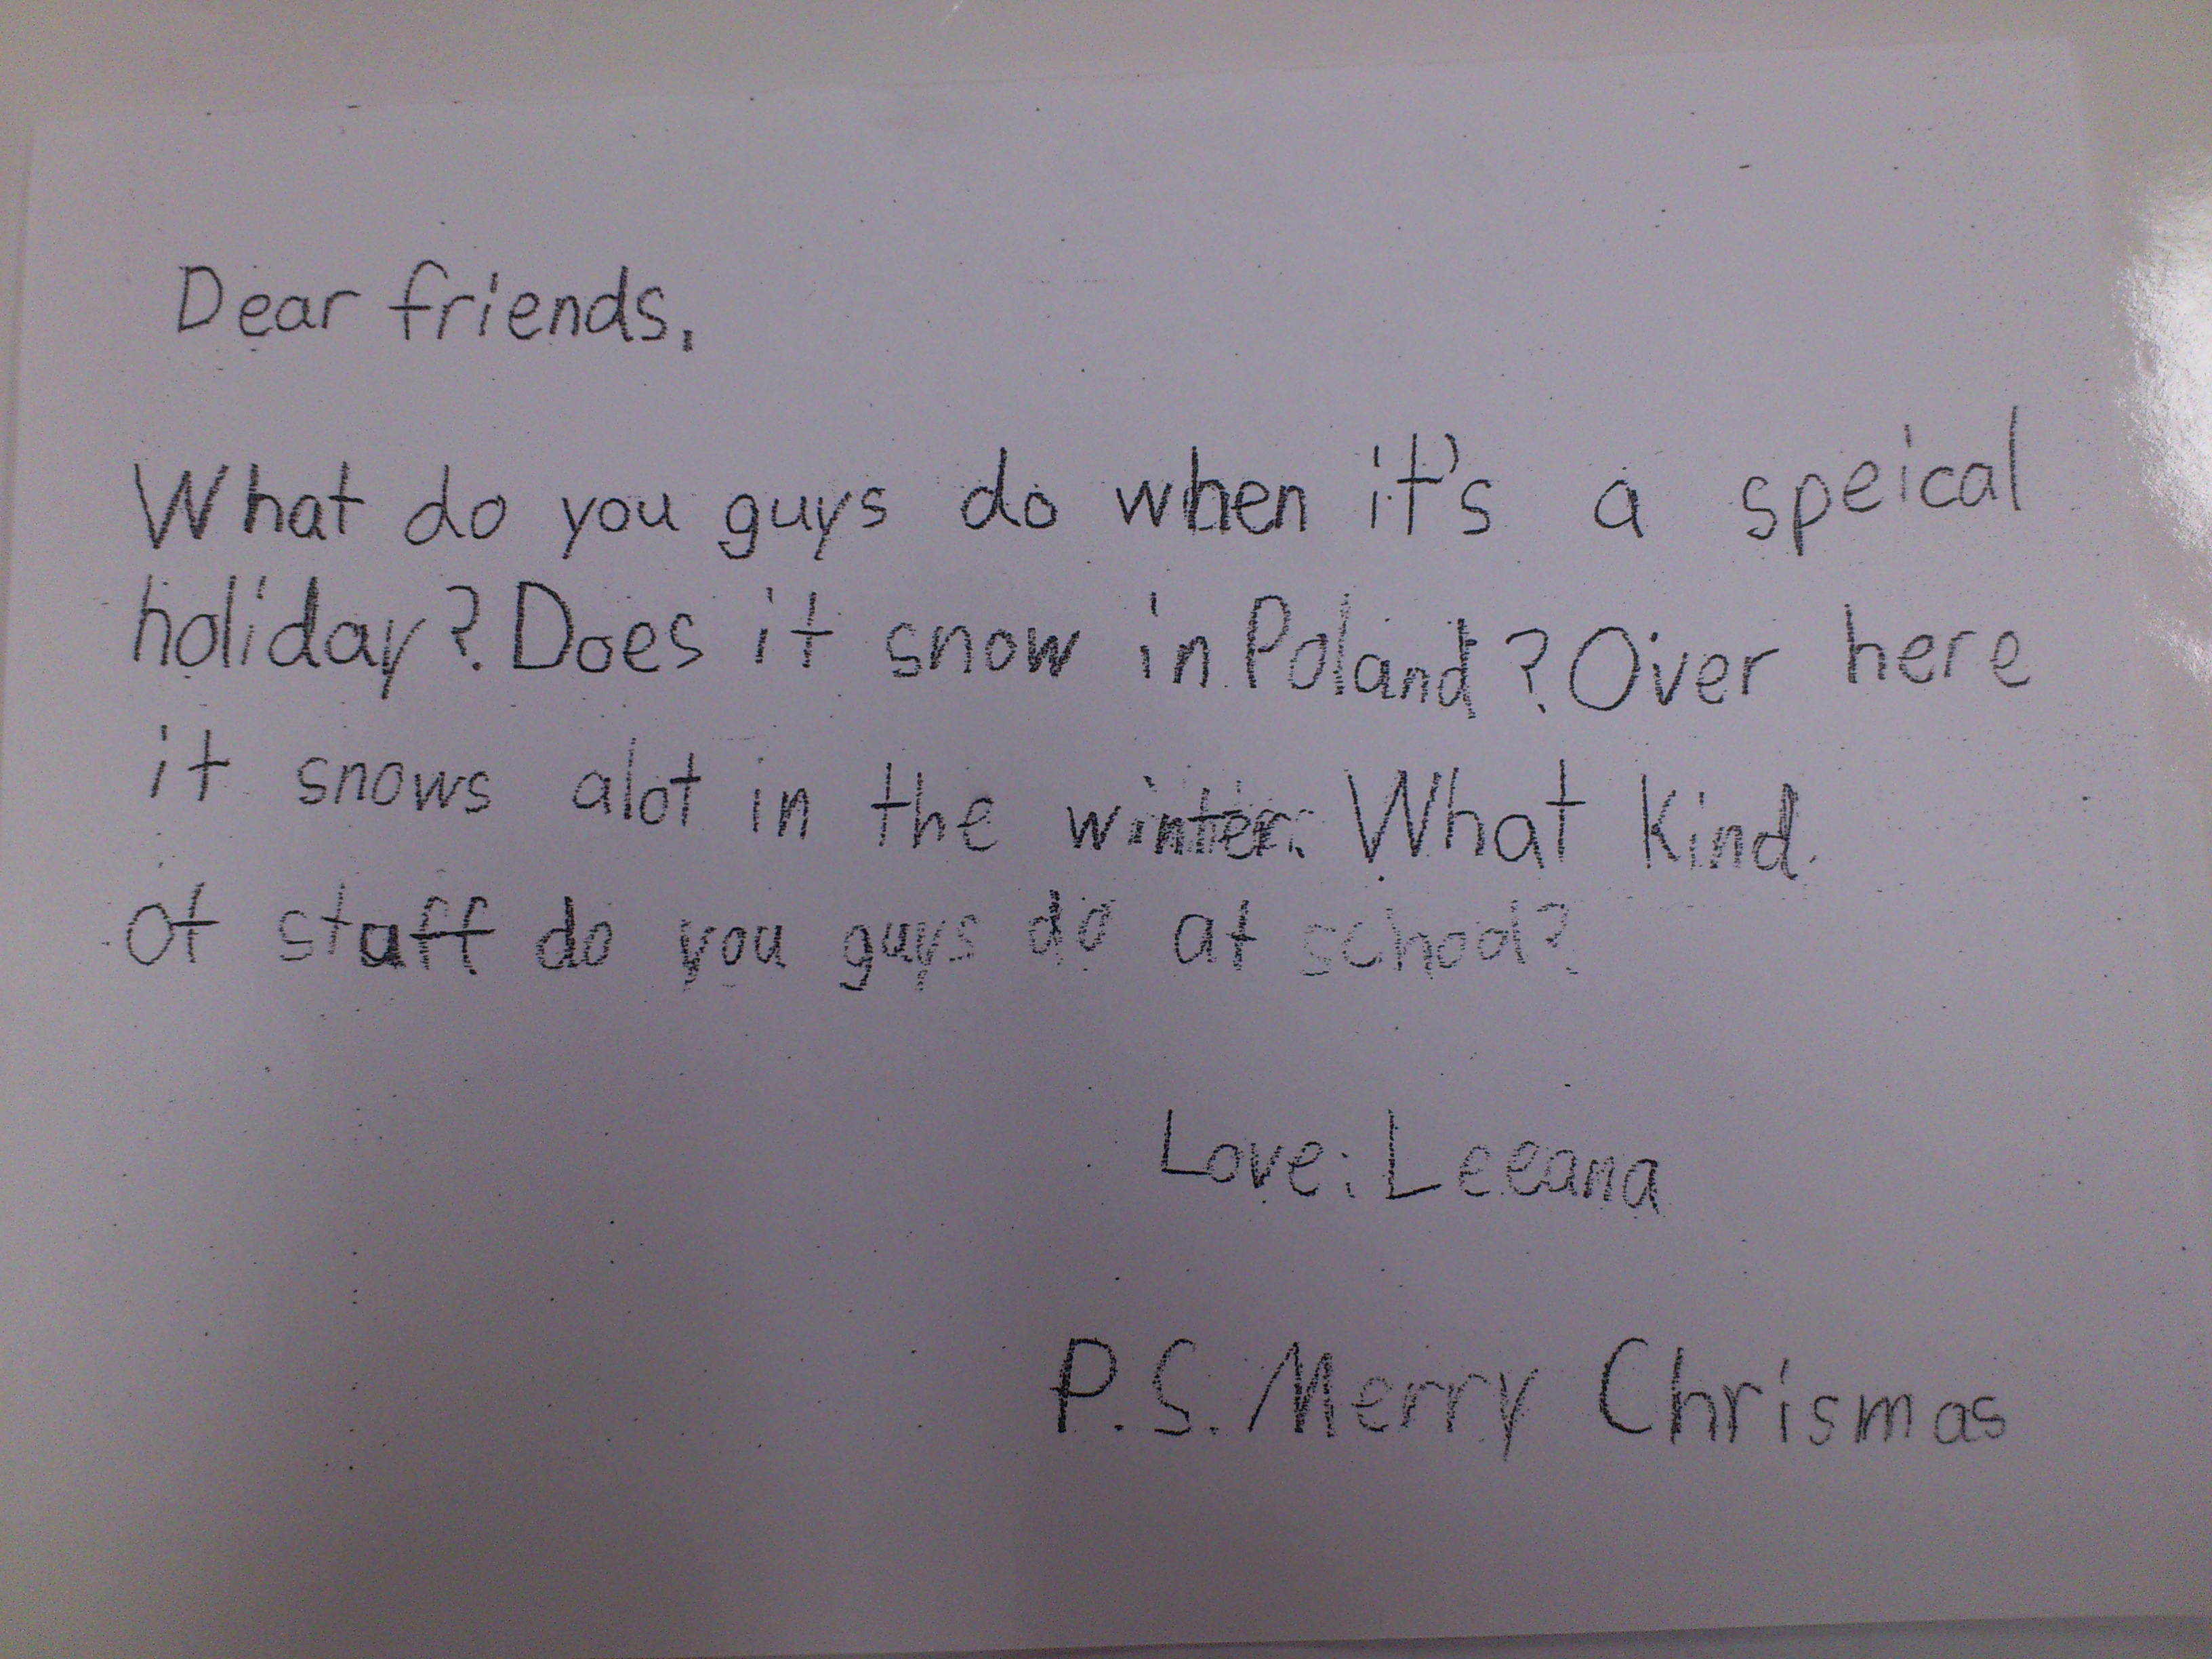 Dear friends,
What do you guys do when it's a speical
holiday? Does it snow in Poland? Over here
it snows alot in the winter. What kind
of staff do you guys do at school?
Love: Leeana
P.S. Merry Chrismas